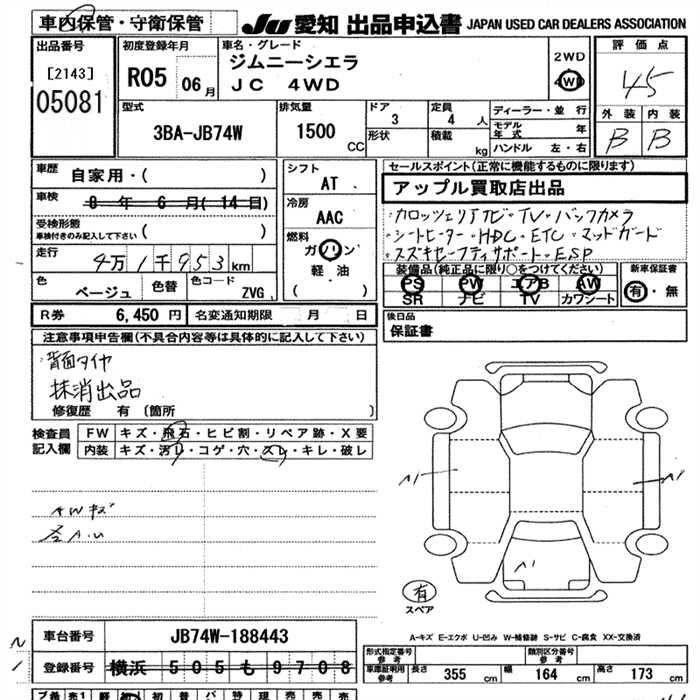 車内保管・守衛保管
JU 愛知 出品申込書 JAPAN USED CAR DEALERS ASSOCIATION
出品番号
[2143]
05081
初度登録年月
R05 06月
車名・グレード
ジムニーシエラ
JC 4WD
2WD
4WD
評価点
4.5
外装 内装
B B
型式
3BA-JB74W
排気量
1500 CC
ドア
3
形状
定員
4 人
積載 kg
ディーラー・並行
モデル年式 年
ハンドル 左・右
車歴
自家用・( )
車検
8年6月(14日)
受検形態
車検付きのみ記入して下さい ( )
走行
4万1千953km
色
ベージュ
色替
色コード
ZVG
シフト
AT
冷房
AAC
燃料
ガソリン
軽油
( )
セールスポイント(正常に機能するものに限ります)
アップル買取店出品
カロッツェリアナビ・TV・バックカメラ
シートヒーター・HDC・ETC・マッドガード
スズキセーフティサポート・ESP
装備品(純正品に限り○をつけてください)
PS PW エアB AW
SR ナビ TV カワシート
新車保証書
有・無
R券 6,450円
名変通知期限 月 日
後日品
保証書
注意事項申告欄(不具合内容等は具体的に記入して下さい)
背面タイヤ
抹消出品
修復歴 有 〔箇所 〕
検査員記入欄
FW キズ・飛石・ヒビ割・リペア跡・X要
内装 キズ・汚レ・コゲ・穴・スレ・キレ・破レ
AWキズ
各A.U
A1
A1
A1
有
スペア
A-キズ E-エクボ U-凹み W-補修跡 S-サビ C-腐食 XX-交換済
車台番号
JB74W-188443
登録番号
横浜 505 も 9708
形式指定番号
参考
類別区分番号
参考
車庫証明用
参考
長さ 355 cm
幅 164 cm
高さ 173 cm